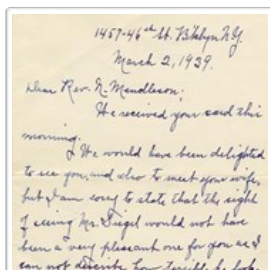 1457-46th St. B'klyn N.Y.
March 2, 1939.
Dear Rev. N. Mendleson;
We received your card this
morning.
We would have been delighted
to see you, and also to meet your wife,
but I am sorry to state that the sight
of seeing Mr. Siegel would not have
been a very pleasant one for you as I
can not describe how terrible he looks